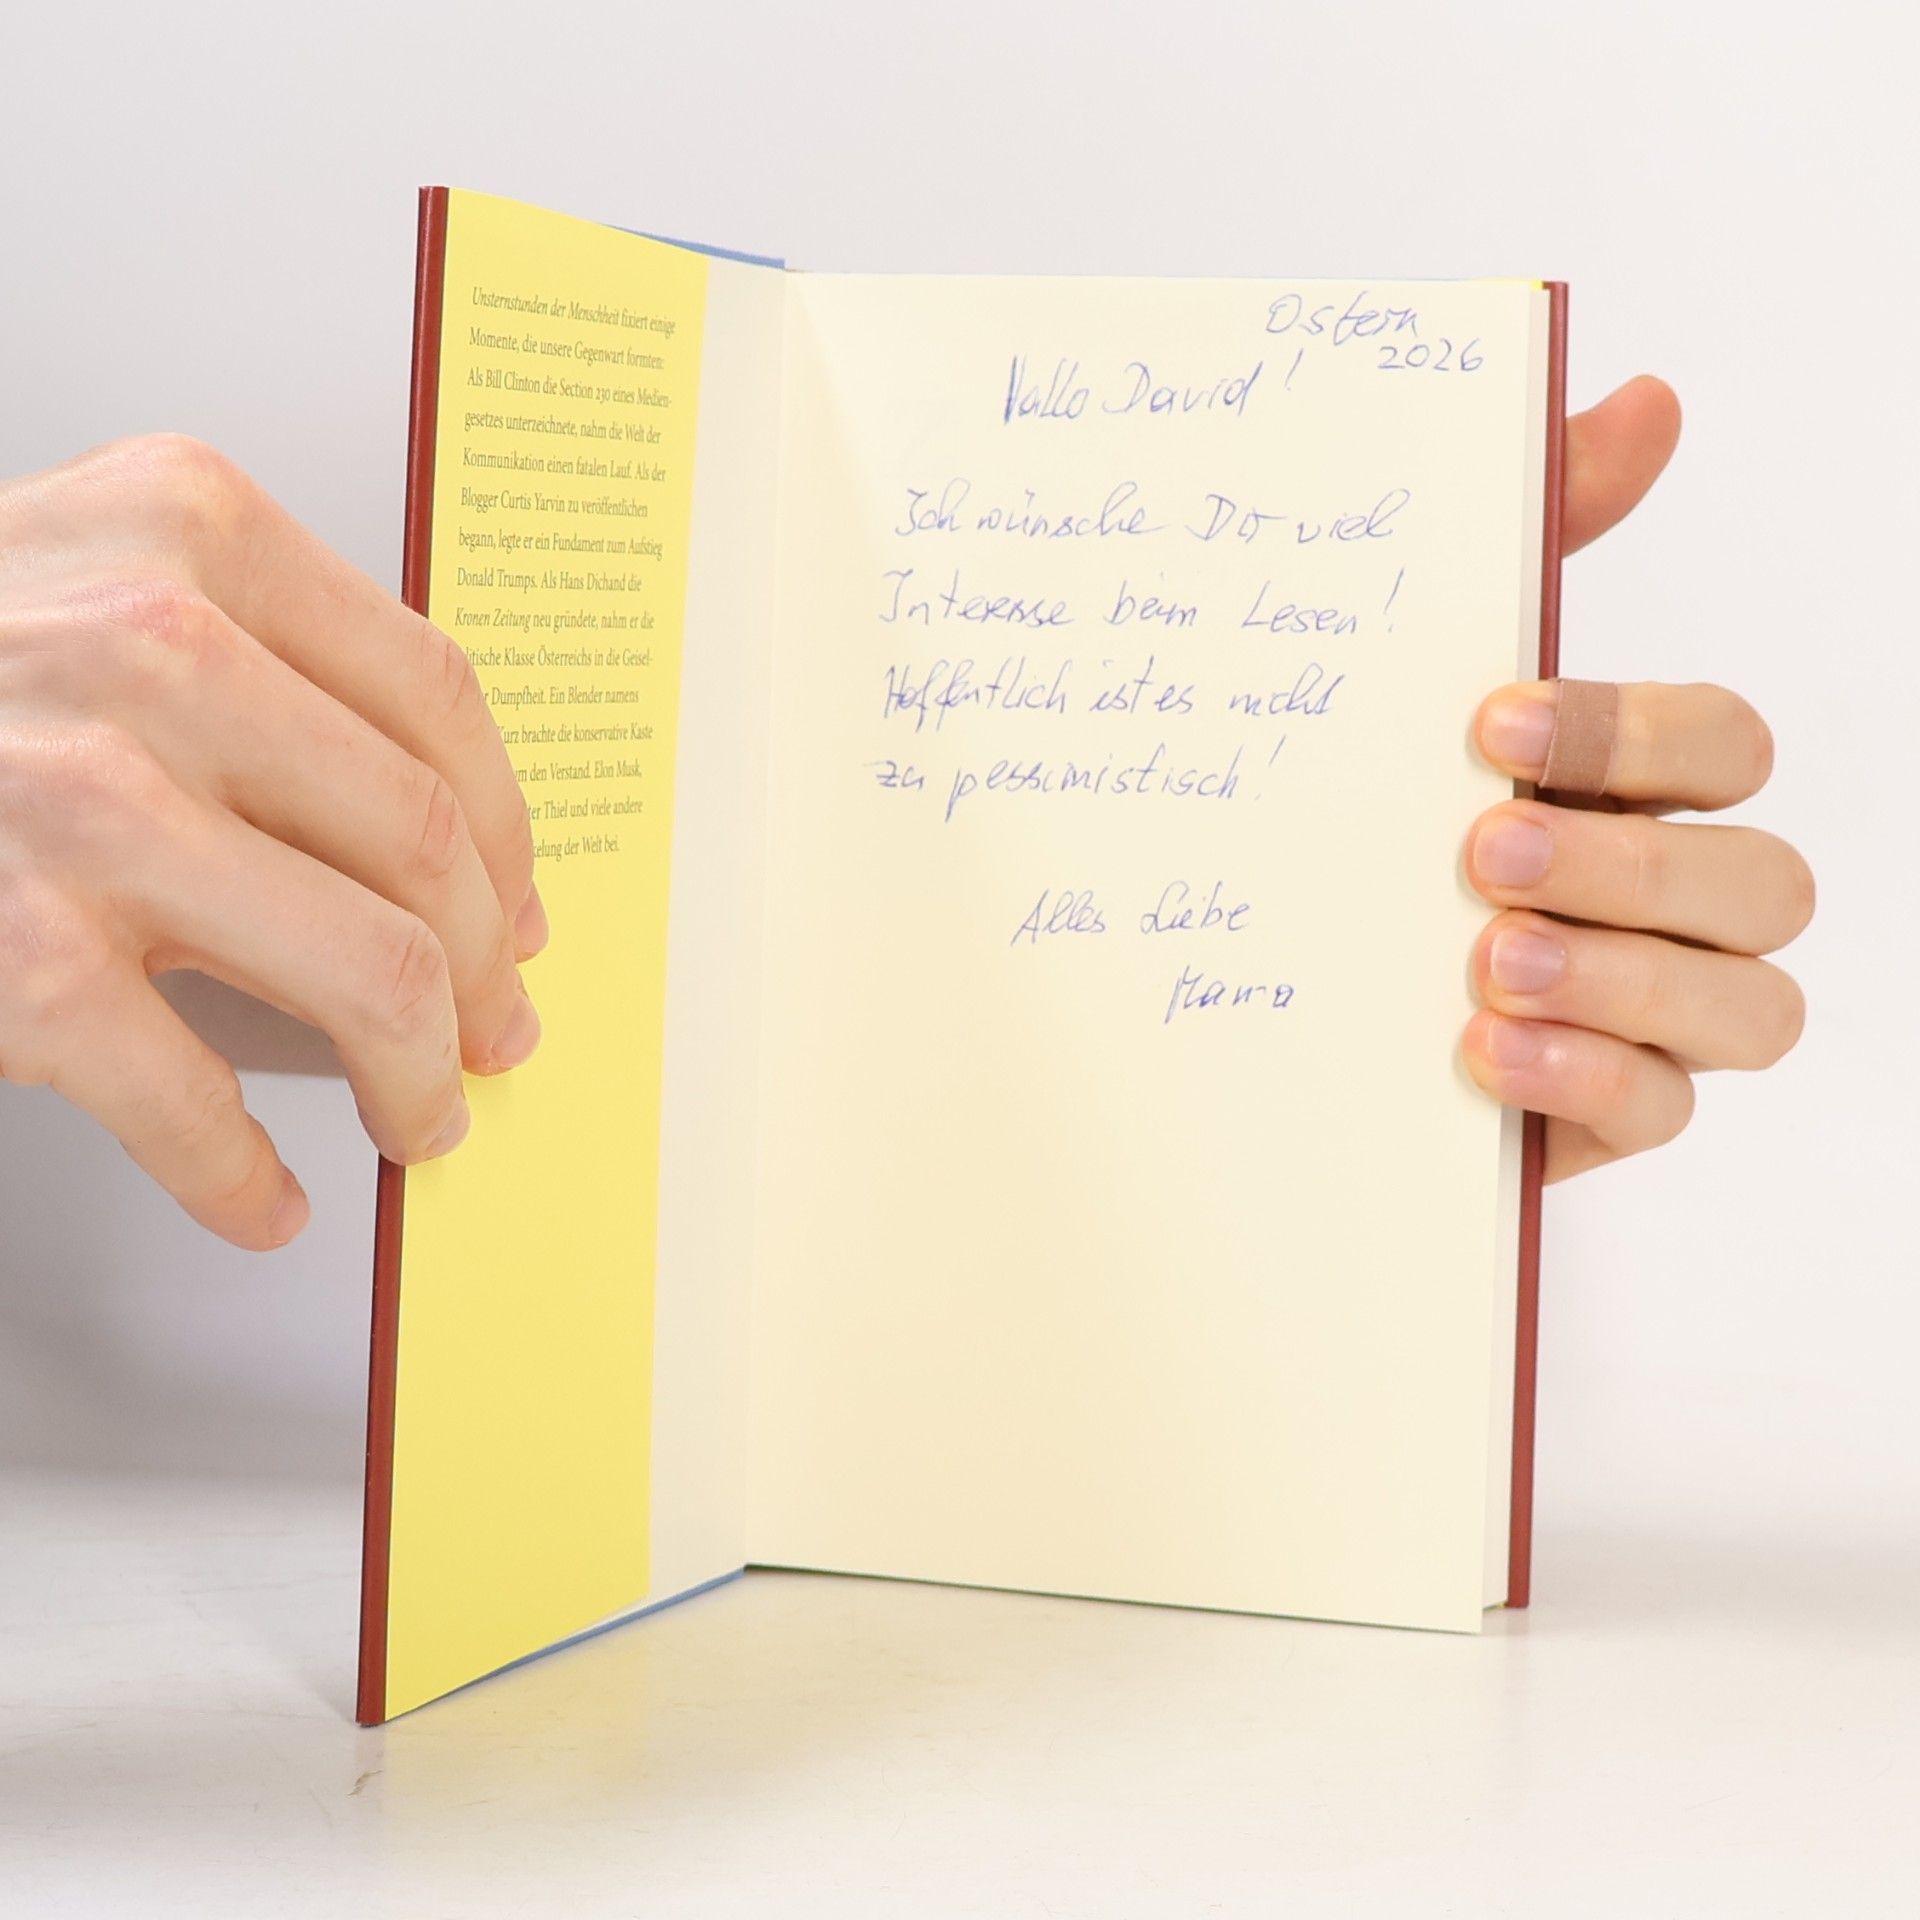 Unsternstunden der Menschheit fixiert einige
Momente, die unsere Gegenwart formten:
Als Bill Clinton die Section 230 eines Medien-
gesetzes unterzeichnete, nahm die Welt der
Kommunikation einen fatalen Lauf. Als der
Blogger Curtis Yarvin zu veröffentlichen
begann, legte er ein Fundament zum Aufstieg
Donald Trumps. Als Hans Dichand die
Kronen Zeitung neu gründete, nahm er die
litische Klasse Österreichs in die Geisel-
r Dumpfheit. Ein Blender namens
Kurz brachte die konservative Kaste
m den Verstand. Elon Musk,
ter Thiel und viele andere
kelung der Welt bei.
Ostern
2026
Hallo David!
Ich wünsche Dir viel
Interesse beim Lesen!
Hoffentlich ist es nicht
zu pessimistisch!
Alles Liebe
Mama